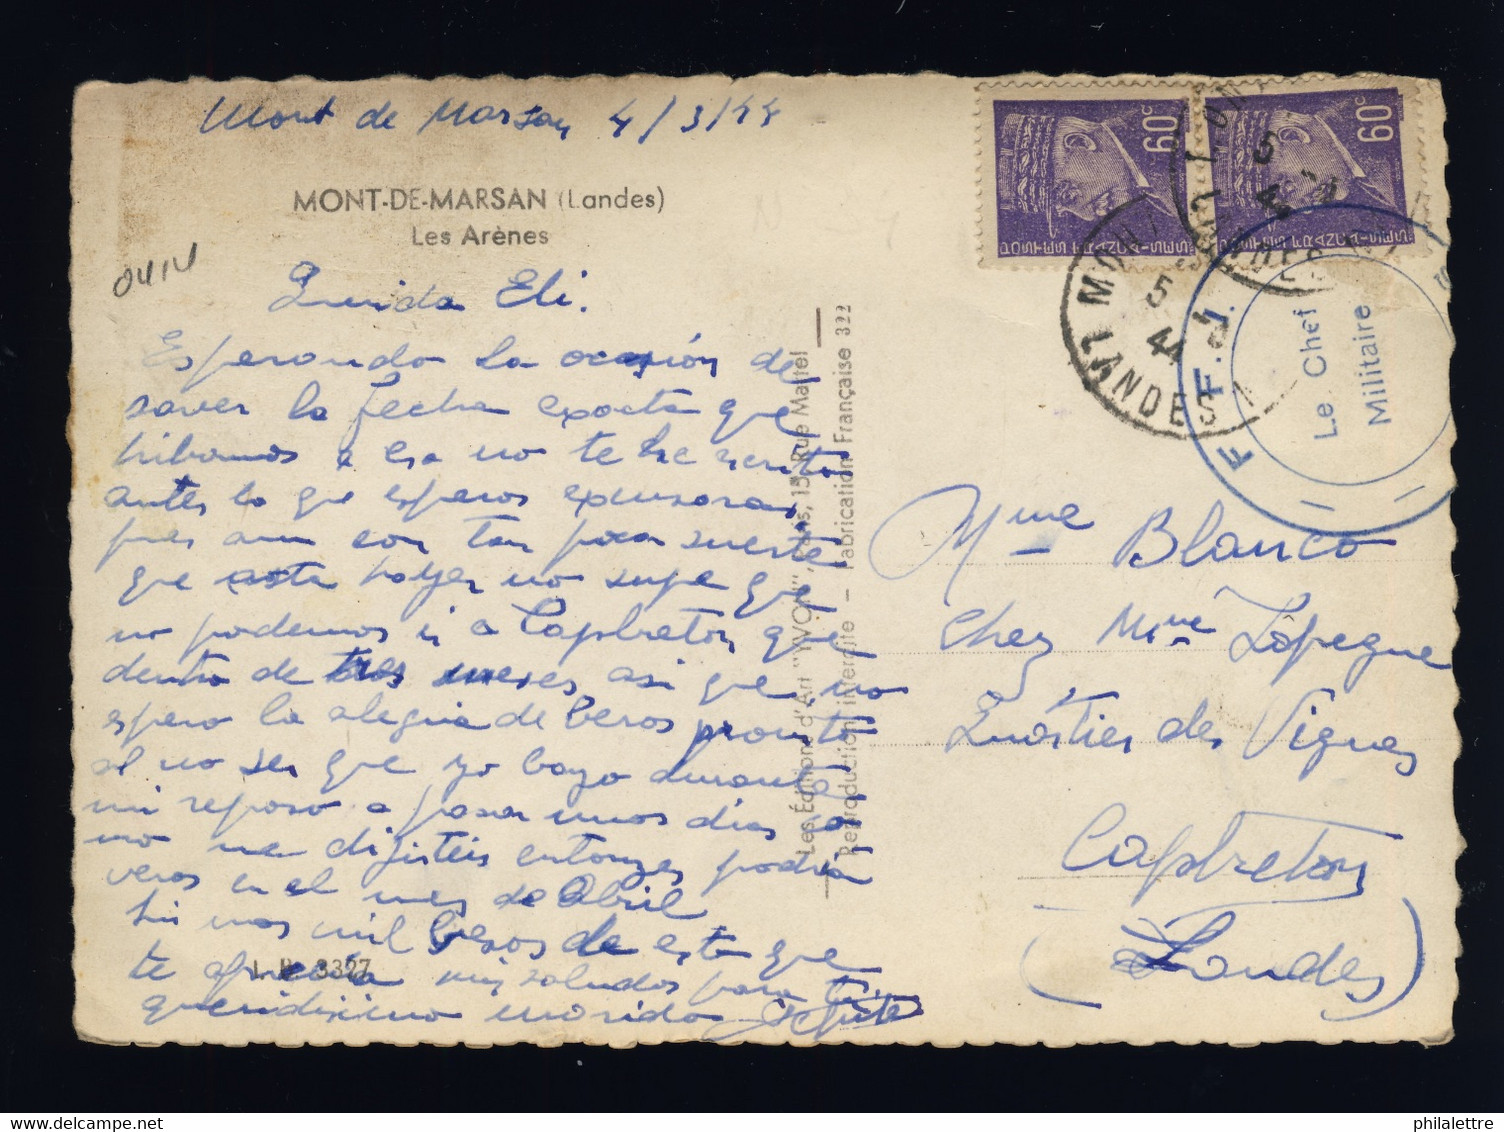 Mont de Marsan 4/3/44
MONT-DE-MARSAN (Landes)
Les Arènes
Querida Eli.
Esperando la ocasión de
saver la fecha exacta que
hibamos a esa no te he escrito
antes lo que espero
pues aun con tan poca suerte
que asta hayer no supe que
no podemos ir a Capbreton que
dentro de tres meses, asi que no
espero la alegria de beros pronto
al no ser que yo baya durante
mi reposo a pasar unos dias
no me dijisteis entonzes podria
veros en el mes de Abril
Sin mas mil besos de esta que
te aprecia mis saludos para tu
queridisimo marido
3327
Les Éditions d'Art "YVON", Paris, 15, Rue Martel
Reproduction interdite — Fabrication Française 322
60c
60c
POSTES FRANÇAISES
POSTES FRANÇAISES
MONT
LANDES
5
44
5
F.F.I.
Le Chef
Militaire
Mme Blanco
Chez Mme
Quartier des Vignes
Capbreton
(Landes)
philalettre